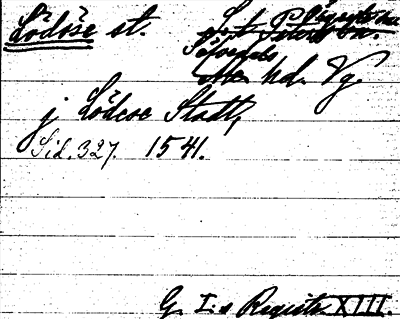 Lödöse st.
Ale hd. Vg.
j Lödose Stadt,
Sid. 327. 1541.
G. I:s Registr. XIII.